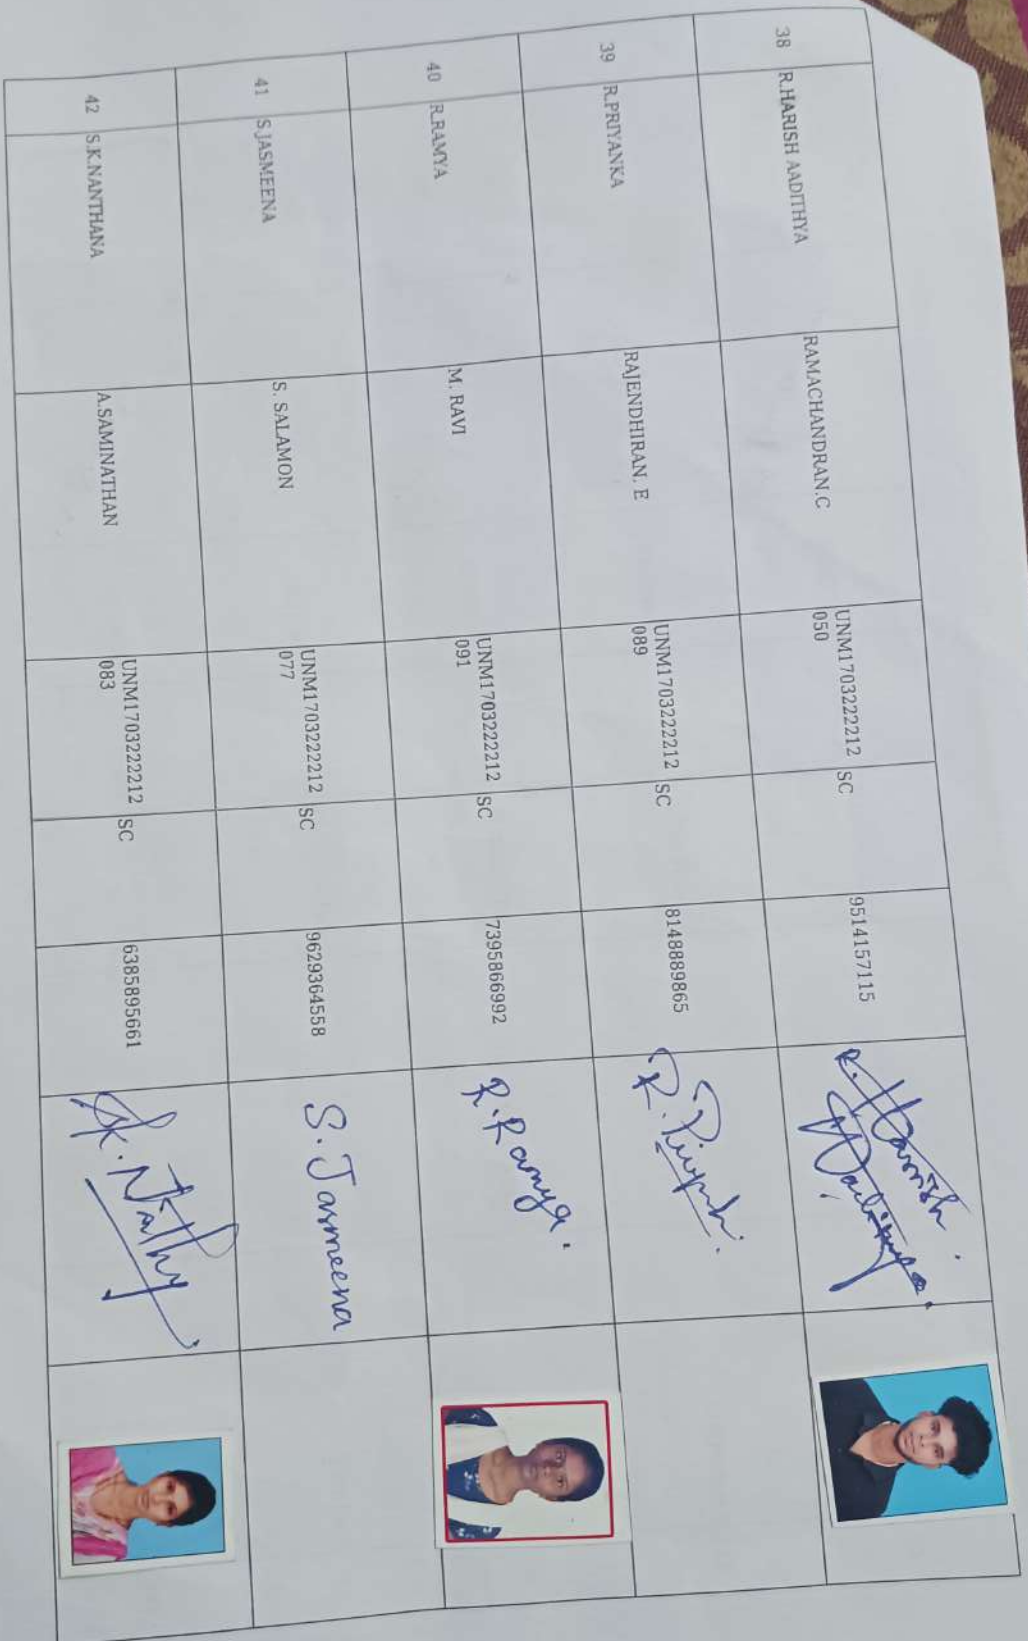 38 R.HARISH AADITHYA RAMACHANDRAN.C UNM1703222212 SC 9514157115 R. Harrish
050 Aadithya.
39 R.PRIYANKA RAJENDHIRAN. E UNM1703222212 SC 8148889865 R. Priyank.
089
40 R.RAMYA M. RAVI UNM1703222212 SC 7395866992 R.Ramya.
091
41 S.JASMEENA S. SALAMON UNM1703222212 SC 9629364558 S. Jasmeena
077
42 S.K.NANTHANA A.SAMINATHAN UNM1703222212 SC 6385895661
083